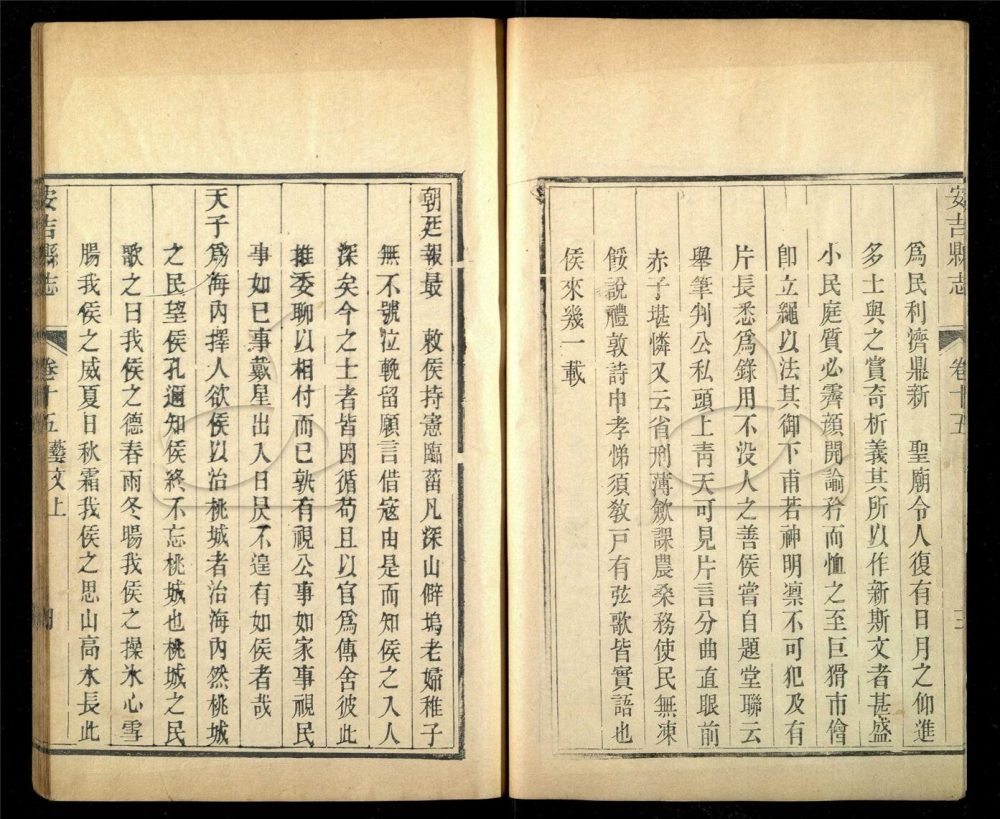 安吉縣志 卷十五 三
爲民利濟鼎新 聖廟令人復有日月之仰進
多士與之賞奇析義其所以作新斯文者甚盛
小民庭質必霽顔開諭矜而恤之至巨猾市儈
卽立繩以法其御下甫若神明凛不可犯及有
片長悉爲錄用不没人之善侯嘗自題堂聯云
舉筆判公私頭上靑天可見片言分曲直眼前
赤子堪憐又云省刑薄歛課農桑務使民無凍
餒說禮敦詩申孝悌須敎戸有弦歌皆實語也
侯來幾一載
朝廷報最 敕侯持憲臨菑凡深山僻塢老婦稚子
無不號泣輓留願言借寇由是而知侯之入人
深矣今之士者皆因循苟且以官爲傳舍彼此
推委聊以相付而已孰有視公事如家事視民
事如已事戴星出入日昃不遑有如侯者哉
天子爲海内擇人欲侯以治桃城者治海内然桃城
之民望侯孔邇知侯終不忘桃城也桃城之民
歌之曰我侯之德春雨冬暘我侯之操氷心雪
腸我侯之威夏日秋霜我侯之思山高水長此
安吉縣志 卷十五藝文上